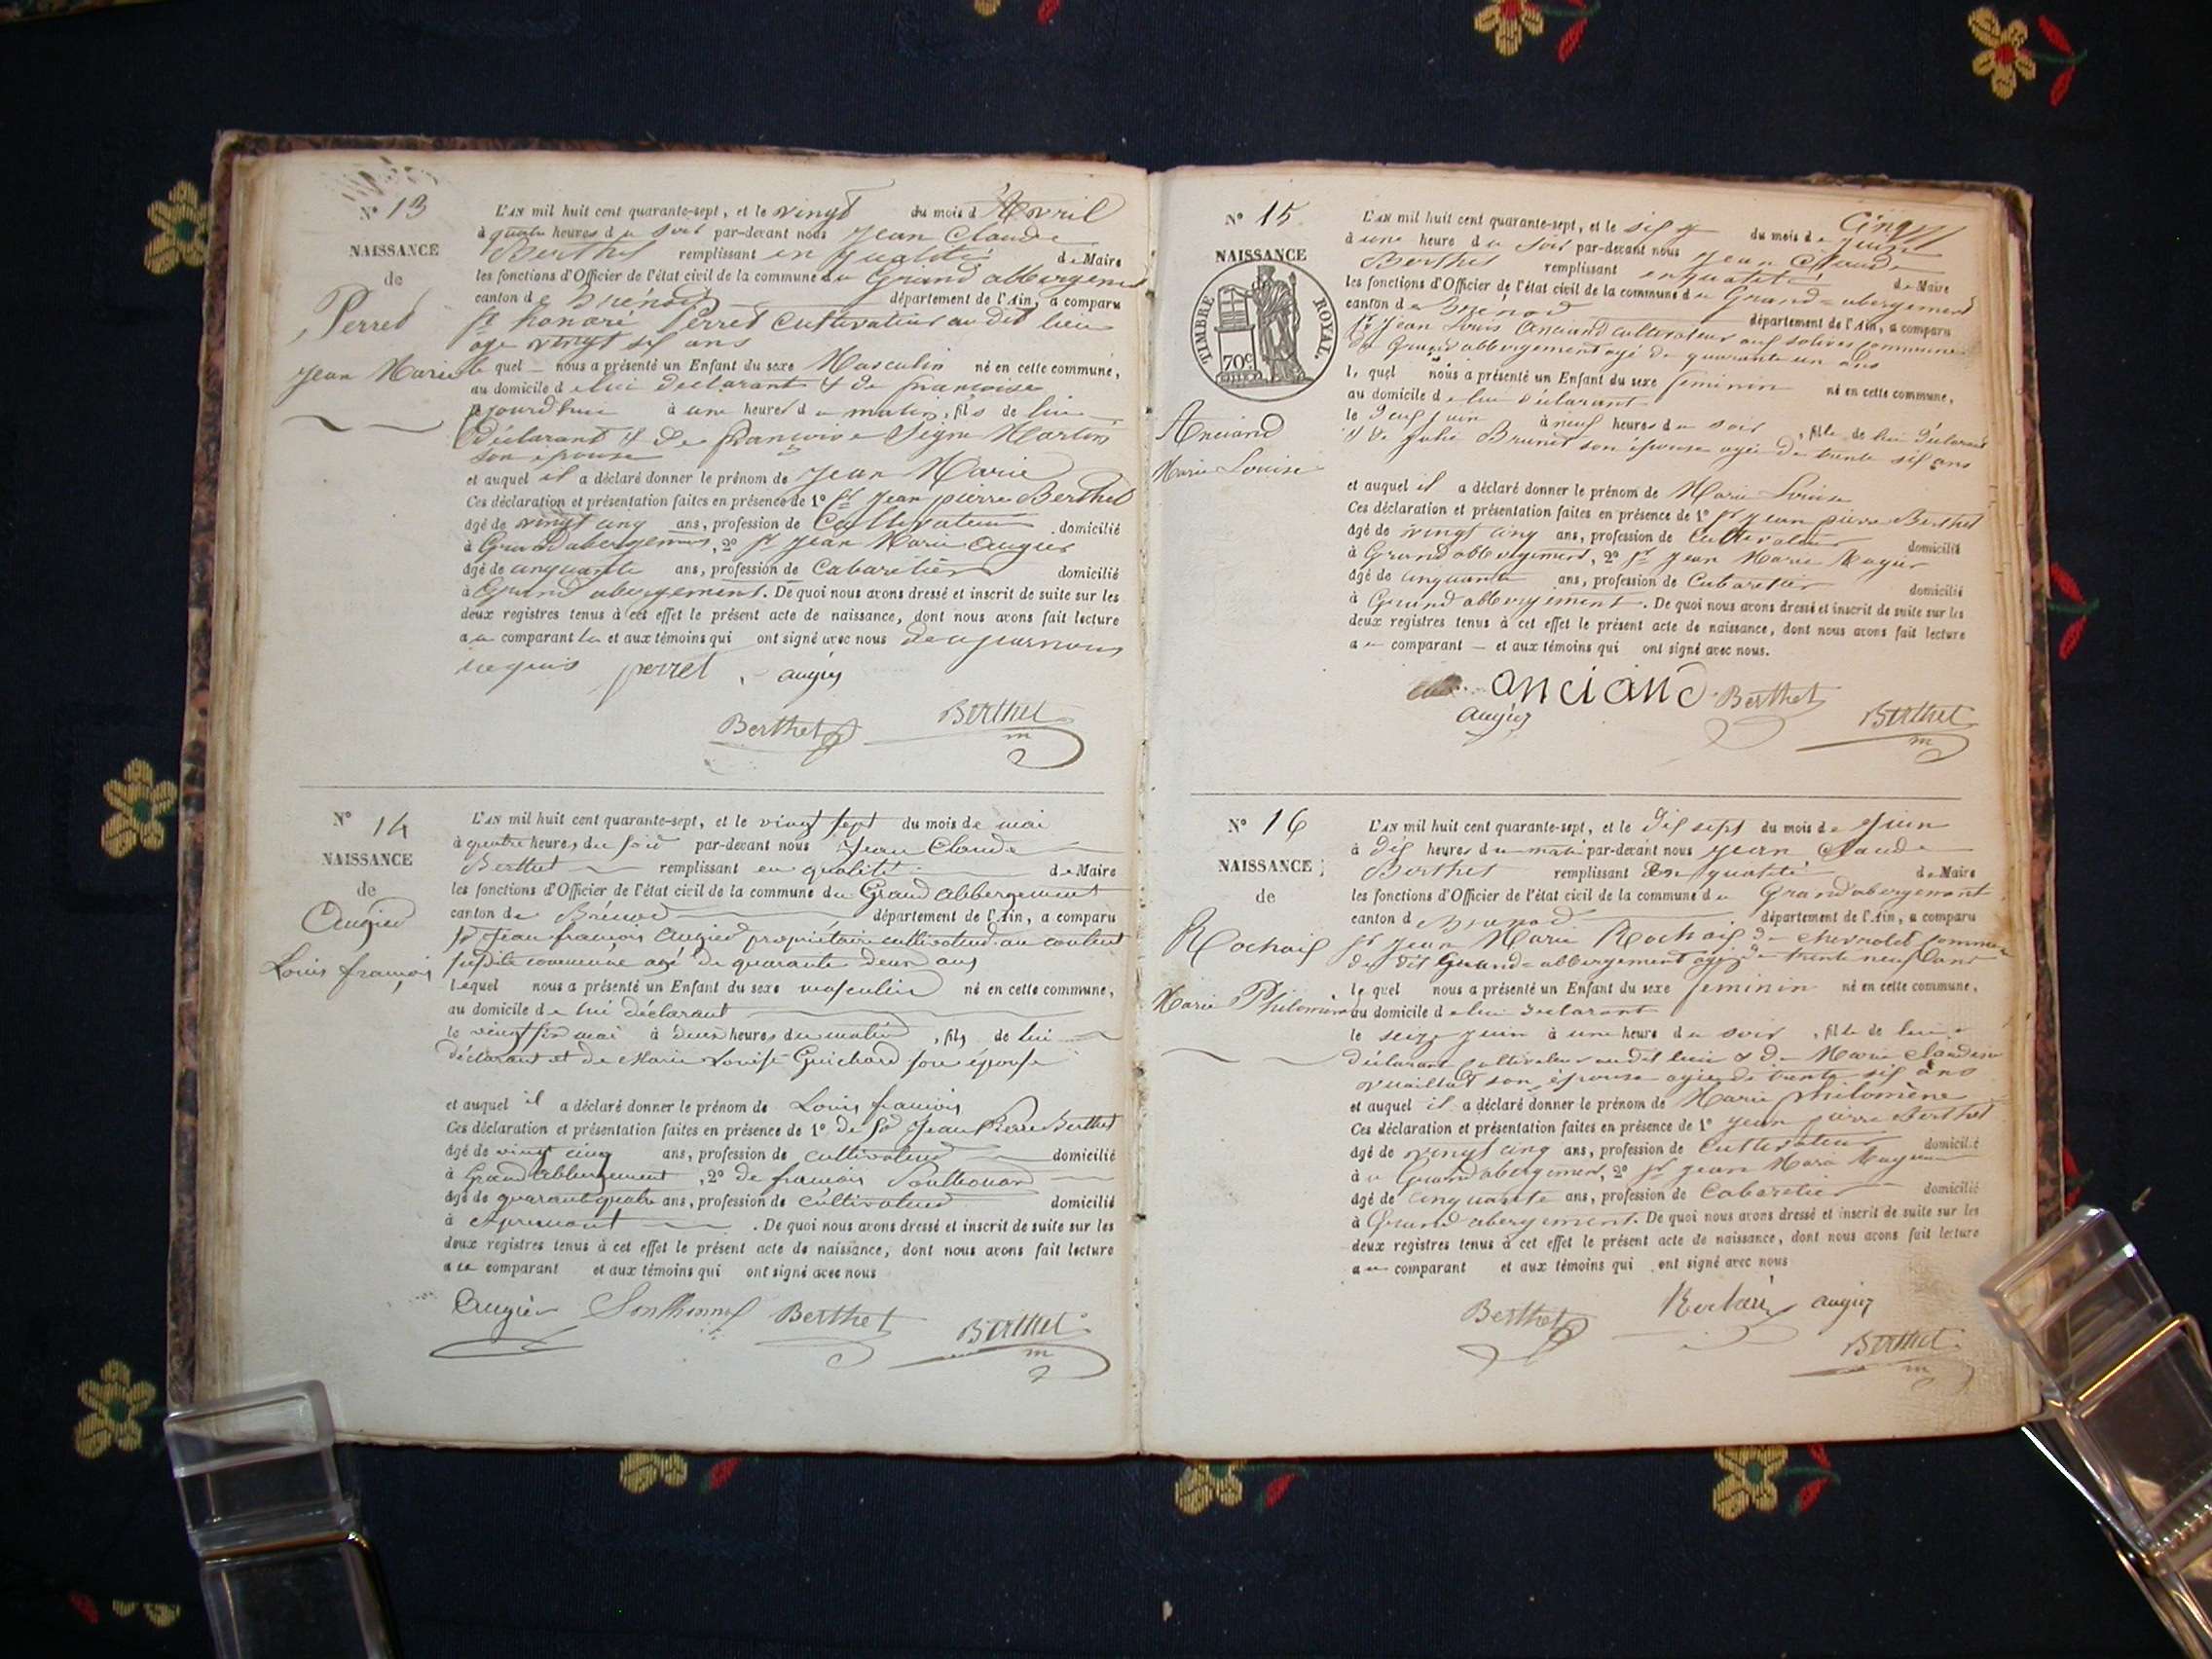 N° 13
NAISSANCE
de
Perret
Jean Marie
L'AN mil huit cent quarante-sept, et le vingt du mois d'Avril
à quatre heures du soir par-devant nous Jean Claude
Berthet remplissant en qualité de Maire
les fonctions d'Officier de l'état civil de la commune du Grand abbergement
canton de Brénod département de l'Ain, a comparu
Sr honoré Perret Cultivateur au dit lieu
age vingt sif ans
le quel nous a présenté un Enfant du sexe Masculin né en cette commune,
au domicile de lui declarant & de francoise
jourdhui à une heure du matin, fils de lui
déclarant & de francoise Martin
son epouse
et auquel il a déclaré donner le prénom de Jean Marie
Ces déclaration et présentation faites en présence de 1° Sr Jean pierre Berthet
âgé de vingt cinq ans, profession de Cultivateur domicilié
à Grand abergement, 2° Sr Jean Marie Augier
âgé de cinquante ans, profession de Cabaretier domicilié
à Grand abergement. De quoi nous avons dressé et inscrit de suite sur les
deux registres tenus à cet effet le présent acte de naissance, dont nous avons fait lecture
au comparant et aux témoins qui ont signé avec nous
requis perret augier
Berthet Berthet
m
N° 14
NAISSANCE
de
Augier
Louis françois
L'AN mil huit cent quarante-sept, et le vingt sept du mois de mai
à quatre heures du soir par-devant nous Jean Claude
Berthet remplissant en qualité de Maire
les fonctions d'Officier de l'état civil de la commune du Grand Abbergement
canton de Brénod département de l'Ain, a comparu
Sr Jean françois Augier propriétaire cultivateur au
susdite commune agé de quarante deux ans
Lequel nous a présenté un Enfant du sexe masculin né en cette commune,
au domicile de lui déclarant
le vingt six mai à deux heures du matin, fils de lui
déclarant et de Marie Louise Guichard son épouse
et auquel il a déclaré donner le prénom de Louis françois
Ces déclaration et présentation faites en présence de 1° de Sr Jean Pierre Berthet
âgé de vingt cinq ans, profession de cultivateur domicilié
à Grand Abbergement, 2° de françois Southonnax
âgé de quarante quatre ans, profession de cultivateur domicilié
à . De quoi nous avons dressé et inscrit de suite sur les
deux registres tenus à cet effet le présent acte de naissance, dont nous avons fait lecture
au comparant et aux témoins qui ont signé avec nous
Augier Berthet
Berthet
m
N° 15
NAISSANCE
TIMBRE ROYAL.
70c
Anciand
Marie Louise
Cinq
L'AN mil huit cent quarante-sept, et le du mois de Juin
à une heure du soir par-devant nous Jean Claude
Berthet remplissant en qualité de Maire
les fonctions d'Officier de l'état civil de la commune du Grand=abergement
canton de Brénod département de l'Ain, a comparu
Sr Jean Louis Anciand cultivateur auf solives commune
du Grand abbergement agé de quarante un ans
le quel nous a présenté un Enfant du sexe feminin né en cette commune,
au domicile de lui déclarant
le deuf juin à neuf heures du soir, fille de lui déclarant
& de Julie Brunet son épouse agée de trente sif ans
et auquel il a déclaré donner le prénom de Marie Louise
Ces déclaration et présentation faites en présence de 1° Sr Jean pierre Berthet
âgé de vingt cinq ans, profession de Cultivateur domicilié
à Grand abbergement, 2° Sr Jean Marie Augier
âgé de cinquante ans, profession de Cabaretier domicilié
à Grand abbergement. De quoi nous avons dressé et inscrit de suite sur les
deux registres tenus à cet effet le présent acte de naissance, dont nous avons fait lecture
au comparant et aux témoins qui ont signé avec nous.
anciand Berthet
augier Berthet
m
N° 16
NAISSANCE
de
Rochaif
Marie Philomène
L'AN mil huit cent quarante-sept, et le dif sept du mois de Juin
à dif heures du matin par-devant nous Jean Claude
Berthet remplissant En qualité de Maire
les fonctions d'Officier de l'état civil de la commune du Grand abergement
canton d département de l'Ain, a comparu
Sr Jean Marie Rochaif de chevrolet commune
du dit Grand=abbergement agé de trente neuf ans
le quel nous a présenté un Enfant du sexe feminin né en cette commune,
au domicile de lui declarant
le seize Juin à une heure du soir, fille de lui
déclarant cultivateur audit lieu & de Marie Claudine
son épouse agée de trente sif ans
et auquel il a déclaré donner le prénom de Marie philomène
Ces déclaration et présentation faites en présence de 1° Jean pierre Berthet
âgé de vingt cinq ans, profession de Cultivateur domicilié
à Grand abergement, 2° Sr Jean Marie
âgé de cinquante ans, profession de Cabaretier domicilié
à Grand abergement. De quoi nous avons dressé et inscrit de suite sur les
deux registres tenus à cet effet le présent acte de naissance, dont nous avons fait lecture
au comparant et aux témoins qui ont signé avec nous
Berthet augier
Berthet
m